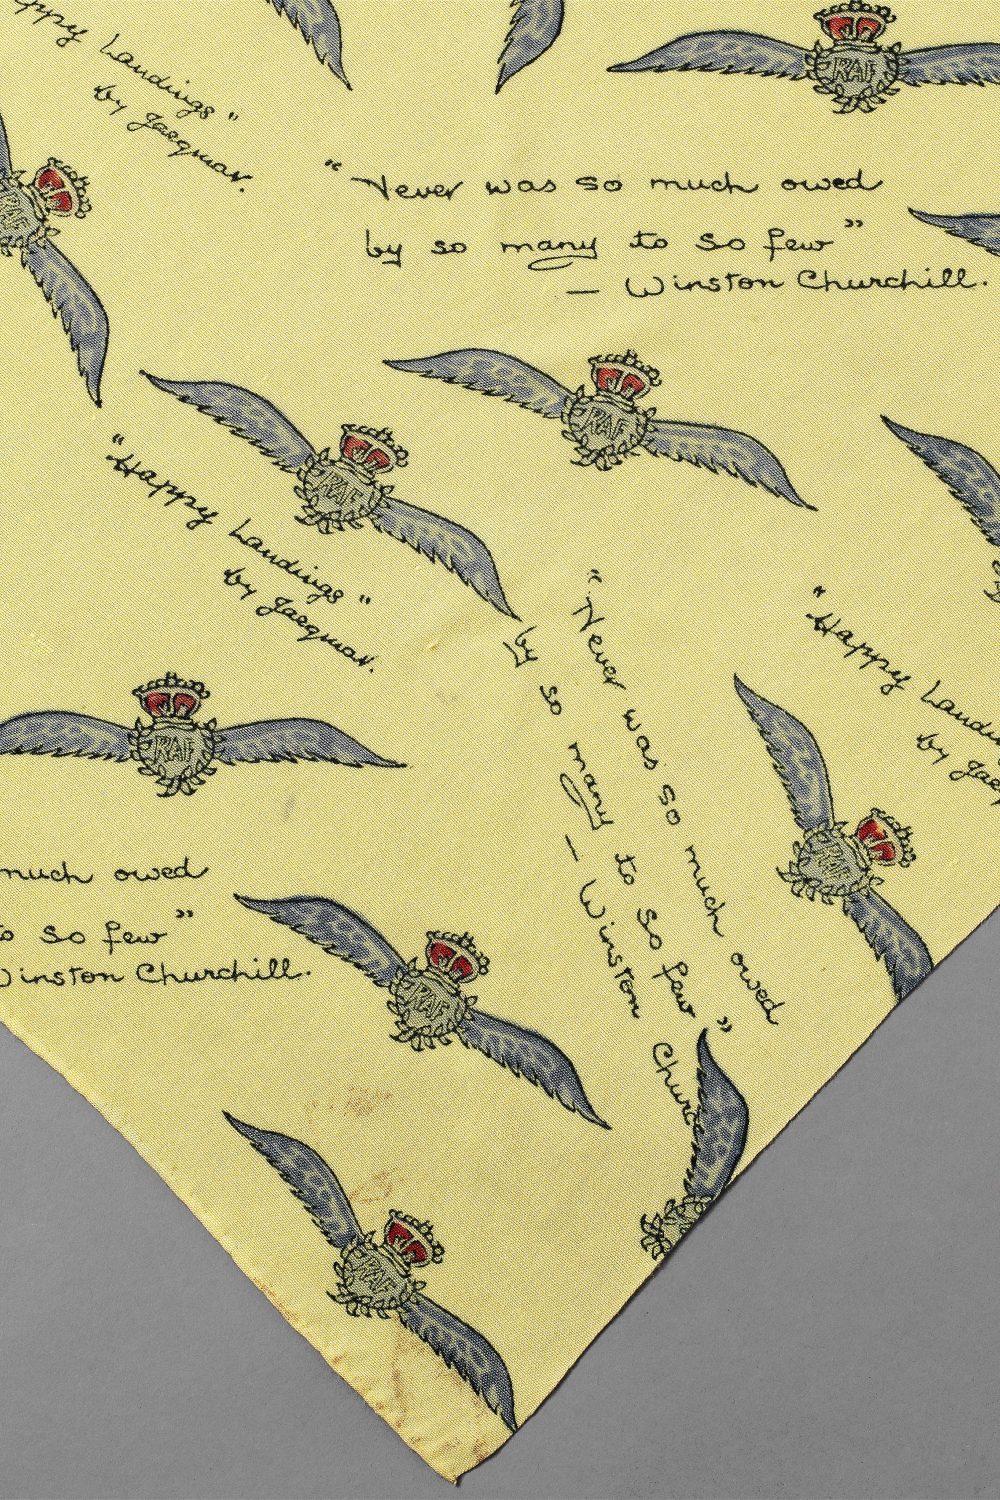 Happy Landings"
by Jacqmar.
RAF
RAF
"Never was so much owed
by so many to so few"
— Winston Churchill.
RAF
RAF
"Happy Landings"
by Jacqmar.
"Never was so much owed
by so many to so few"
— Winston Church
"Happy Landin
by Jacq
RAF
RAF
much owed
to so few"
Winston Churchill.
RAF
RAF